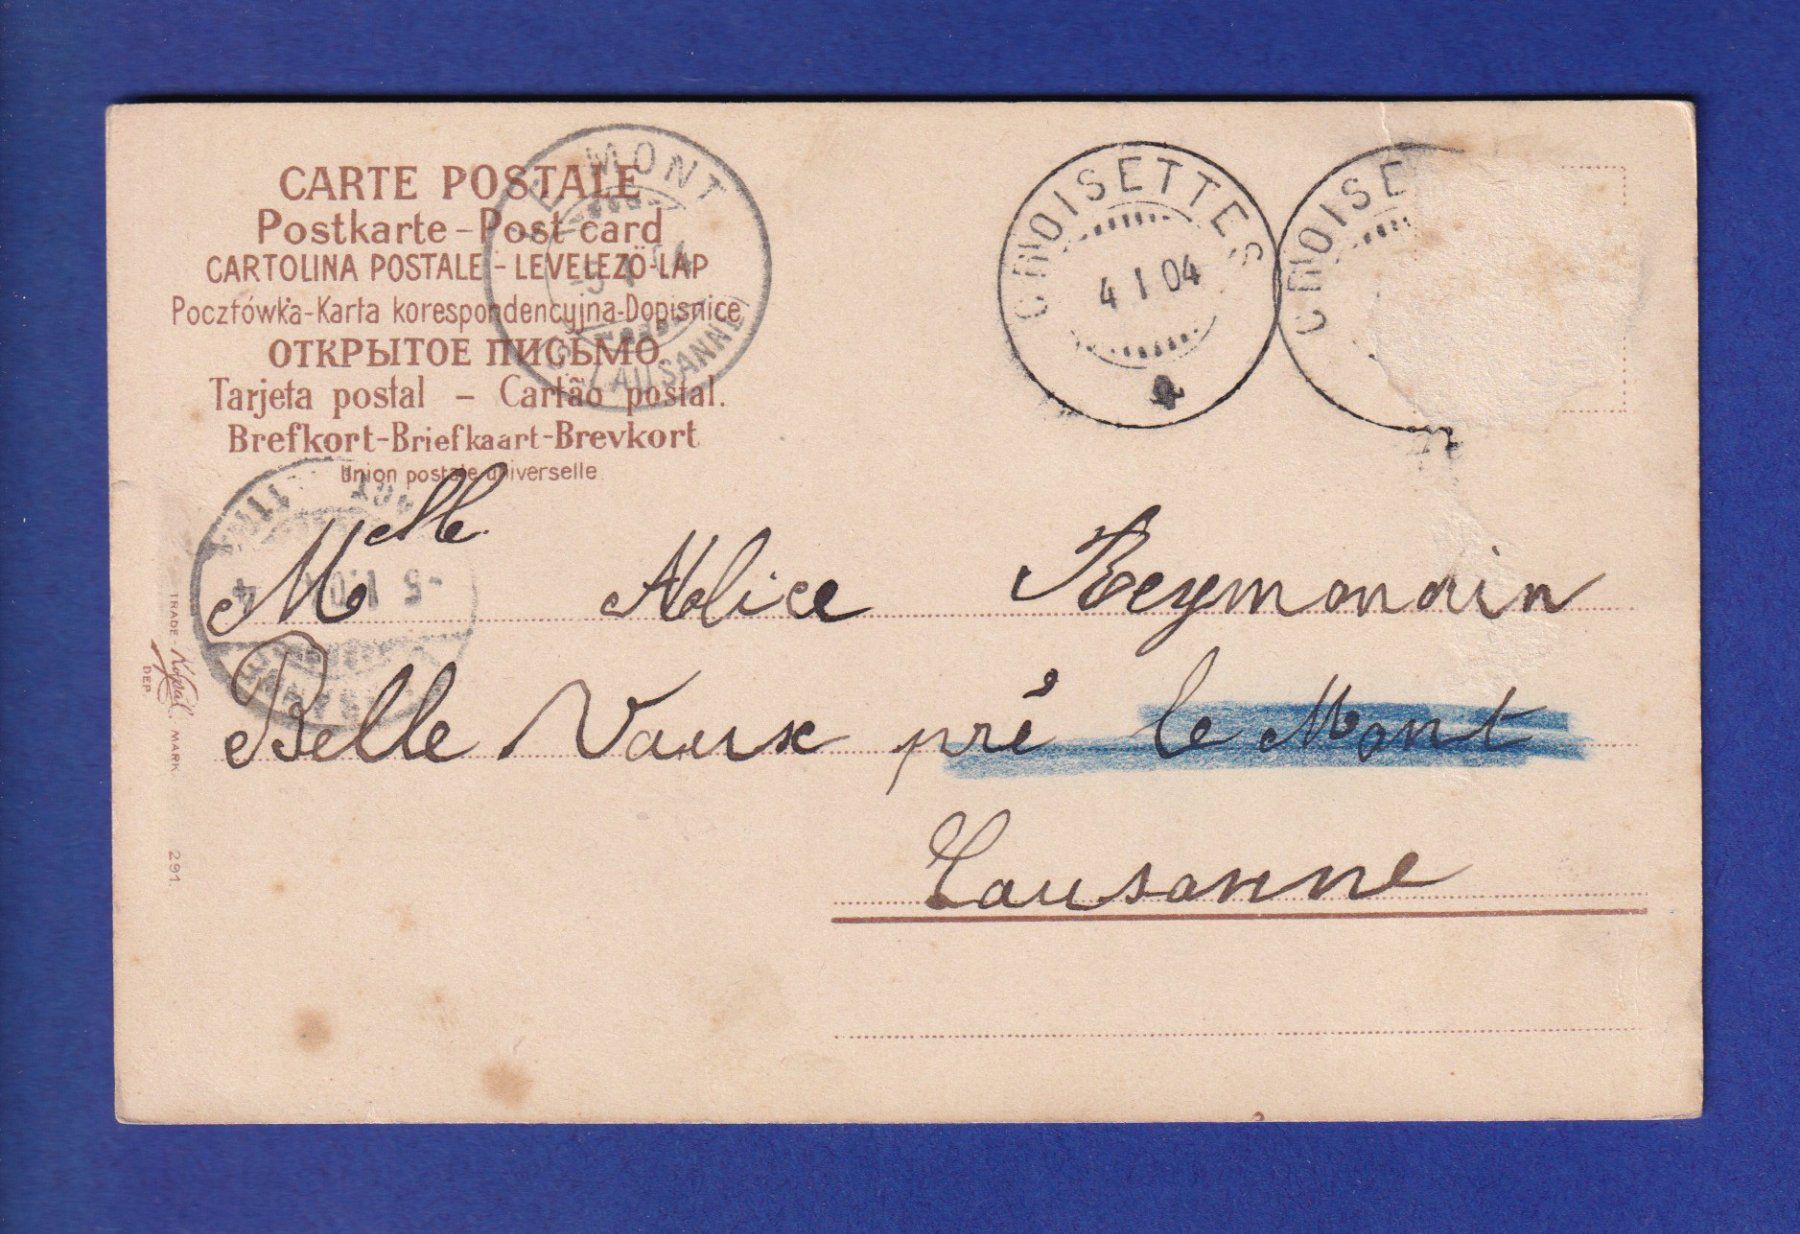 CARTE POSTALE
Postkarte - Post card
CARTOLINA POSTALE - LEVELEZÖ-LAP
Pocztówka-Karta korespondencyjna-Dopisnice
ОТКРЫТОЕ ПИСЬМО
Tarjeta postal - Cartão postal.
Brefkort-Briefkaart-Brevkort
Union postale universelle
LE MONT
LAUSANNE
CROISETTES
4 I 04
CROISE
Mlle Alice Reymondin
Belle Vaux pré le Mont
Lausanne
TRADE Kopal MARK
DEP.
291.